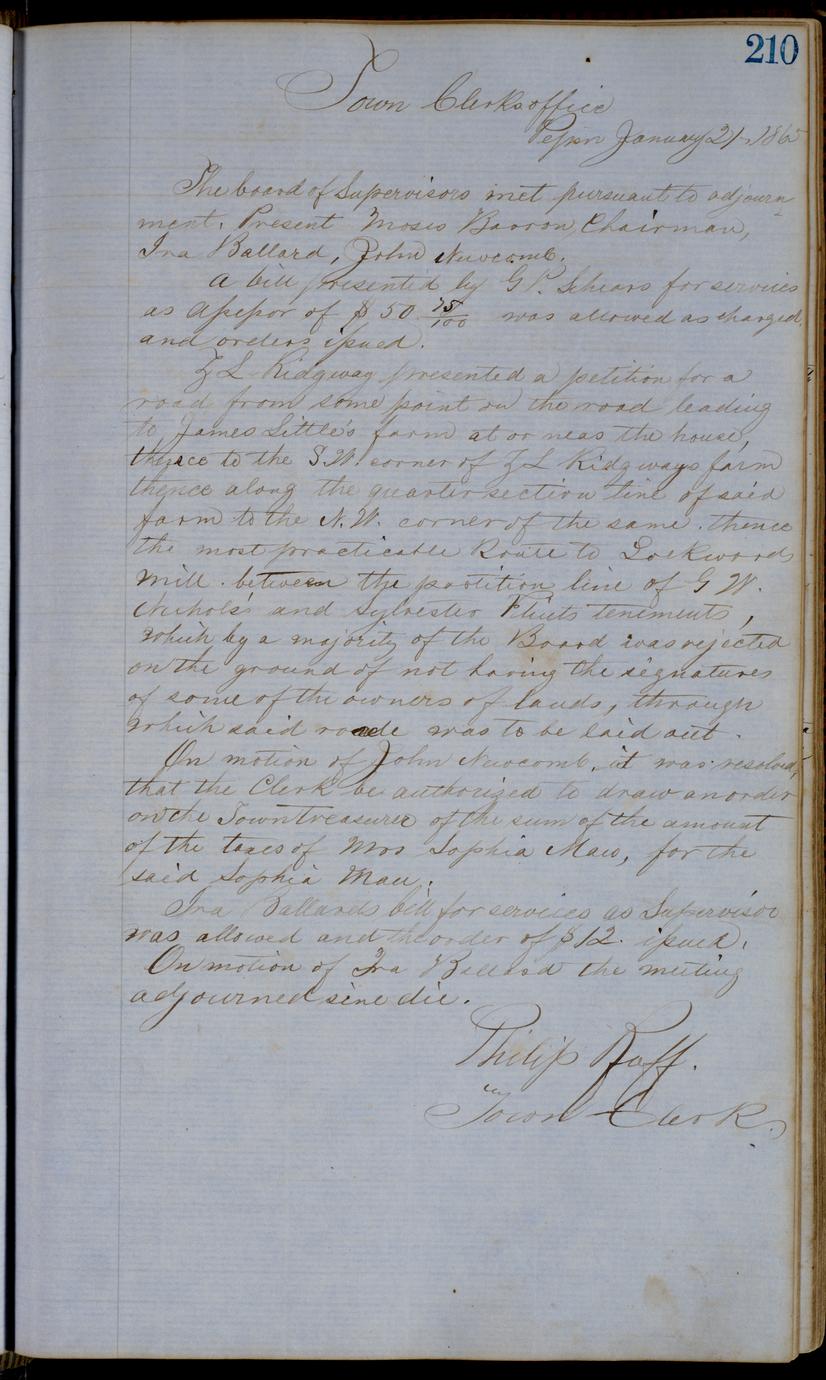 210
Town Clerks office
Pepin January 21, 1865
The board of Supervisors met pursuant to adjourn-
ment. Present Moses Barron, Chairman,
Ira Ballard, John Newcomb.
A bill presented by G P. Shears for services
as Assessor of $ 50 75/100 was allowed as charged,
and orders issued.
Z L Ridgway presented a petition for a
road from some point on the road leading
to James Little's farm at or near the house,
thence to the S.W. corner of Z L Ridgways farm
thence along the quarter section line of said
farm to the N.W. corner of the same. thence
the most practicable Route to Lockwoods
mill. between the partition line of G W.
Nichols's and Sylvester tenements,
which by a majority of the Board was rejected
on the ground of not having the signatures
of some of the owners of lands, through
which said roade was to be laid out.
On motion of John Newcomb, it was resolved,
that the Clerk be authorized to draw an order
on the Town treasurer of the sum of the amount
of the taxes of Mrs Sophia Mau, for the
said Sophia Mau.
Ira Ballards bill for services as Supervisor
was allowed and the order of $12. issued.
On motion of Ira Ballard the meeting
adjourned sine die.
Philip Ruff.
Town Clerk.